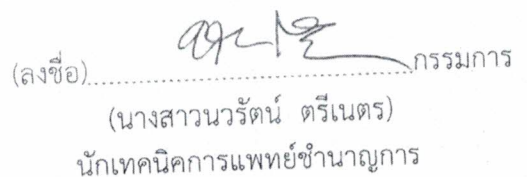 (ลงชื่อ)........................................กรรมการ
(นางสาวนวรัตน์ ตรีเนตร)
นักเทคนิคการแพทย์ชำนาญการ